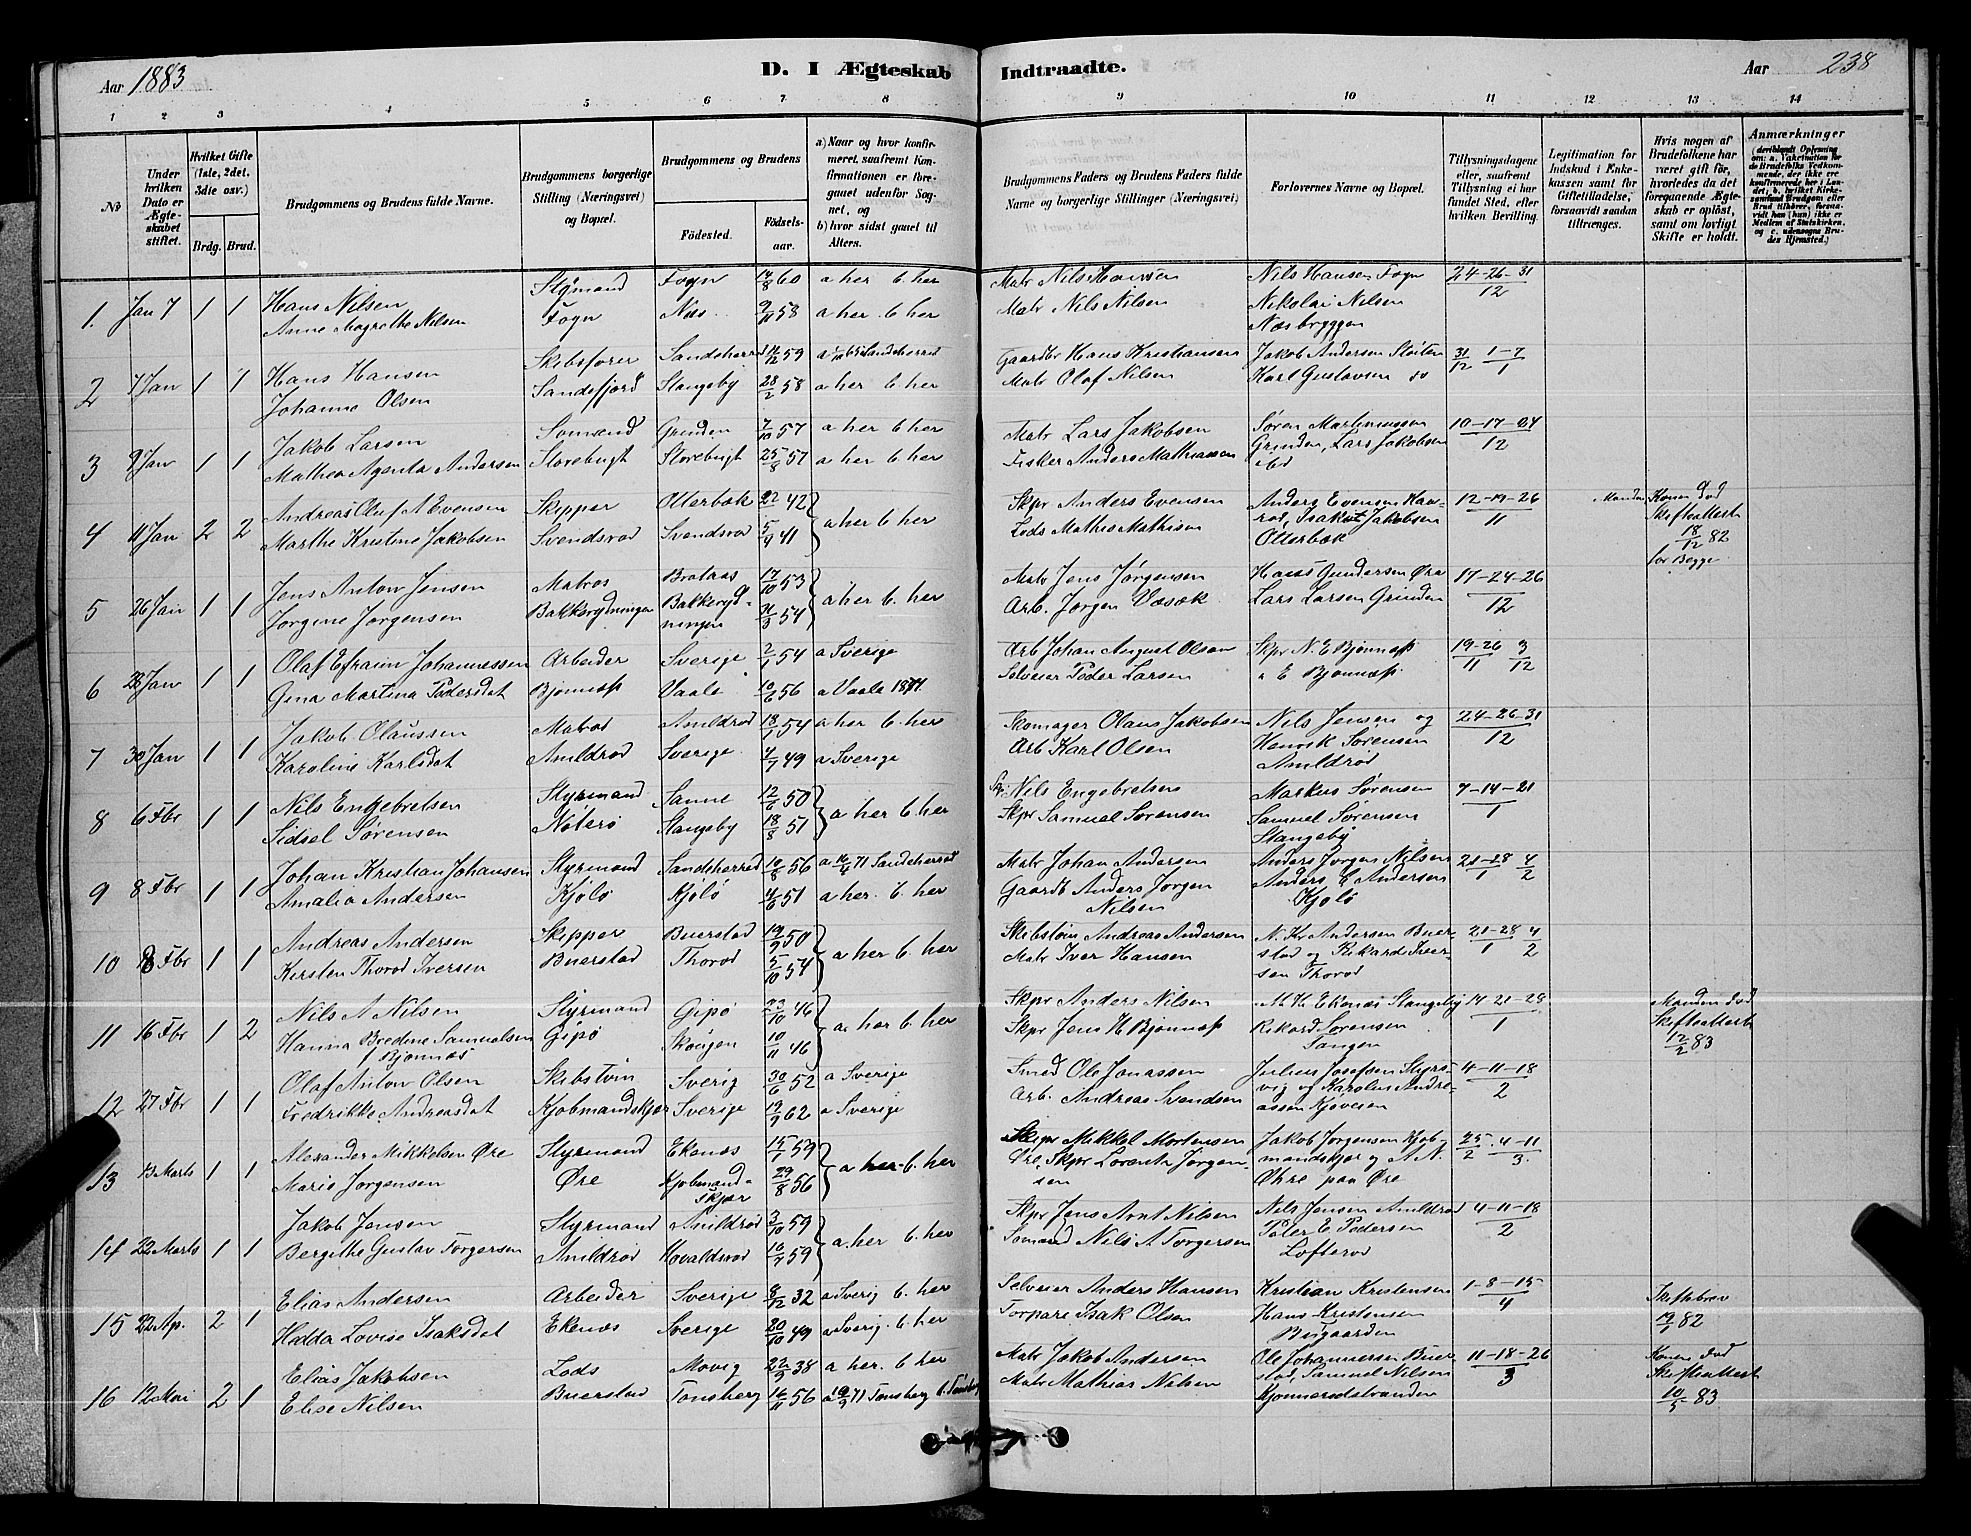 Aar 1883
D. I Ægteskab Indtraadte.
Aar 238
1 2 3 4 5 6 7 8 9 10 11 12 13 14
№
Under hvilken Dato er Ægteskabet stiftet.
Hvilket Gifte (1ste, 2det, 3die osv.)
Brdg. Brud.
Brudgommens og Brudens fulde Navne.
Brudgommens borgerlige Stilling (Næringsvei) og Bopæl.
Brudgommens og Brudens
Fødested. Fødselsaar.
a) Naar og hvor konfirmeret, saafremt Konfirmationen er foregaaet udenfor Sognet, og
b) hvor sidst gaaet til Alters.
Brudgommens Faders og Brudens Faders fulde Navne og borgerlige Stillinger (Næringsvei)
Forlovernes Navne og Bopæl.
Tillysningsdagene eller, saafremt Tillysning ei har fundet Sted, efter hvilken Bevilling.
Legitimation for Indskud i Enkekassen samt for Giftetilladelse, forsaavidt saadan tiltrænges.
Hvis nogen af Brudefolkene har været gift før, hvorledes da det foregaaende Ægteskab er opløst, samt om lovligt Skifte er holdt.
Anmærkninger
1. Jan 7 1 1 Hans Nilsen Styrmand Føyn 14/8 60 a her b. her Matr Nils Hansen Nils Hansen Føyn 24-26-31
Anne Magrethe Nilsen Føyn Næs 9/11 58 a her b her Matr Nils Nilsen Nikolai Nilsen 12
Næsbryggen
2 7 Jan 1 1 Hans Hansen Skibsfører Sandeherred 59 Sandeherred Gaardbr Hans Kristiansen Jakob Andersen 31/12 1-7/1
Johanne Olsen Sandefjord Stangeby 28/2 58 a her b her Matr Olaf Nilsen Karl Gustavsen do
3 9 Jan 1 1 Jakob Larsen Sømand Grinden 7/10 57 a her b her Matr Lars Jakobsen Søren Martinussen 10-17-24
Mathea Agenta Andersen Storebugt Storebugt 25/8 57 a her b her Fisker Anders Mathiassen Grinden, Lars Jakobsen 12
ibd
4 11 Jan 2 2 Andreas Oluf A Evensen Skipper Otterbæk 42 Skpr Anders Evensen Anders Evensen 12-19-26 Konen død
Marthe Kristine Jakobsen Svendsrød Svendsrød 5/9 41 a her b her Lods Mathis Mathisen Isak Jakobsen 11 Skifteattest
Otterbæk 18/12 82
for Begge
5 26 Jan 1 1 Jens Anton Jensen Matros 17/10 53 Matr Jens Jørgensen Hans Gundersen Øre 17-24-26
Jørgine Jørgensen Bakkerydningen Bakkerydningen 54 a her b. her Arb. Jørgen Lars Larsen Grinden 12
6 28 Jan 1 1 Olaf Efraim Johannessen Arbeider Sverige 2/1 54 a Sverige Arb Johan August Olsen Skpr N. E Bjønnæss 19-26/11 3/12
Gina Martina Pedersdat Bjønnæss Vaale 10/6 56 a Vaale 1871. Selveier Peder Larsen E Bjønnæss
7 30 Jan 1 1 Jakob Olaussen Matros Amldrød 18/1 54 a her b. her Skomager Olaus Jakobsen Nils Jensen og 24-26-31
Karoline Karlsdat Amldrød Sverige 4/7 49 a Sverige Arb Karl Olsen Henrik Sørensen 12
Amldrød
8 6 Fbr 1 1 Nils Engebretsen Styrmand Sanne 12/6 50 Skpr Nils Engebretsen Markus Sørensen 7-14-21
Sidsel Sørensen Nøterø Stangeby 18/8 51 a her b. her Skpr Samuel Sørensen Samuel Sørensen 1
Stangeby
9 8 Fbr 1 1 Johan Kristian Johansen Styrmand Sandeherred 10/8 56 a 16/4 71 Sandeherred Matr Johan Andersen Anders Jørgen Nilsen 21-28/1 4/2
Amalia Andersen Kjøløø Kjøløø 4/6 51 a her. b. her Gaardb Anders Jørgen Nilsen Anders E Andersen
Kjølø
10 8 Fbr 1 1 Andreas Andersen Skipper Buerstad 19/9 50 Skibstøm Andreas Andersen N. Kr Andersen Buerstad og Rikard Iversen Thorød 21-28/1 4/2
Kirsten Thorød Iversen Buerstad Thorød 5/10 54 a her b. her Matr Iver Hansen
11 16 Fbr 1 2 Nils A Nilsen Styrmand Gipø 46 Skpr Anders Nilsen M. H. Ekenæs Stangeby 14-21-28 Manden død
Hanna Bredine Samuelsen Gipø Skougen 10/11 46 a. her b. her Skpr Jens H Bjønnæss Rikard Sørensen 1 Skifteattest
f Bjønnæs Tangen 12/2 83
12 27 Fbr 1 1 Olaf Anton Olsen Skibstøm Sverig 30/6 52 a Sverige Smed Ole Jonassen Julius Josefsen 4-11-18
Fredrikke Andreasdat Kjøbmandskjær Sverige 19/9 62 a Sverige Arb. Andreas Svendsen og Karolus Andreassen 2
13 13 Marts 1 1 Alexander Mikkelsen Øre Styrmand Ekenæs 15/1 59 Skpr Mikkel Mortensen Jakob Jørgensen Kjøbmandskjær og A. N. 25/2 4-11/3
Marie Jørgensen Øre Kjøbmandskjær 29/8 56 a her b. her Øre, Skpr Lorents Jørgensen Øhre paa Øre
14 22 Marts 1 1 Jakob Jensen Styrmand Amldrød 3/10 59 Skpr Jens Arnt Nilsen Nils Jensen Amldrød 4-11-18
Bergithe Gustav Torgersen Amldrød Hovaldsrød 59 a. her b. her Sømand Nils A Torgersen Peter E Pedersen 2
Lofterød
15 22 Ap. 2 1 Elias Andersen Arbeider Sverige 8/12 32 a Sverig b. her Selveier Anders Hansen Kristian Kristensen 1-8-15 Skiftebrev
Hedda Lovise Isaksdat Ekenæs Sverige 20/10 49 a Sverig. b. her Torpare Isak Olsen Hans Kristensen 4 82
Bugaarden
16 12 Mai 2 1 Elias Jakobsen Lods Movig 22/9 38 a her. b her Matr Jakob Andersen Ole Johannesen Buerstad, Samuel Nilsen 11-18-26 Konen død
Elise Nilsen Buerstad Tønsberg 16/11 56 71 Tønsberg b. Matr Mathias Nilsen 3 Skifteattest
10/5 83